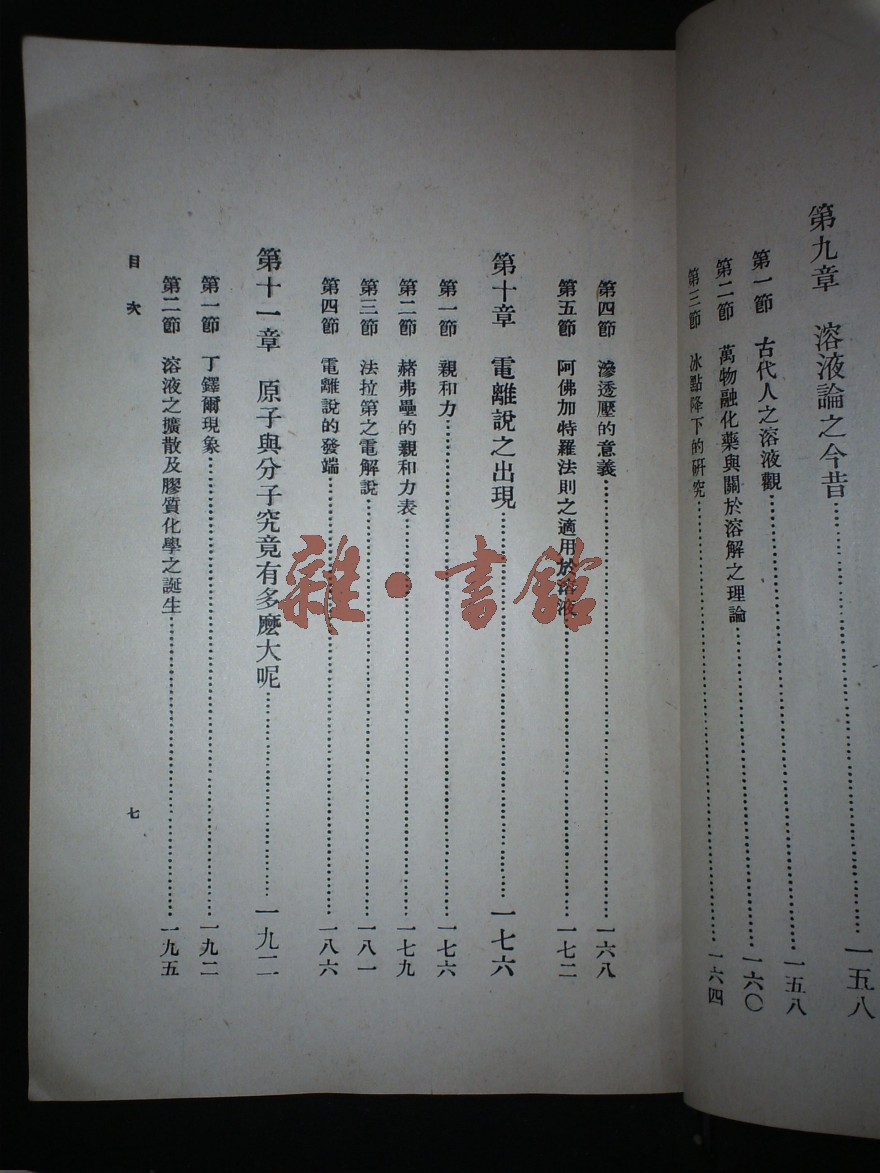 第九章　溶液論之今昔……一五八
第一節　古代人之溶液觀……一五八
第二節　萬物融化藥與關於溶解之理論……一六〇
第三節　冰點降下的研究……一六四
第四節　滲透壓的意義……一六八
第五節　阿佛加特羅法則之適用於溶液……一七二
第十章　電離說之出現……一七六
第一節　親和力……一七六
第二節　赭弗壘的親和力表……一七九
第三節　法拉第之電解說……一八一
第四節　電離說的發端……一八六
第十一章　原子與分子究竟有多麼大呢……一九二
第一節　丁鐸爾現象……一九二
第二節　溶液之擴散及膠質化學之誕生……一九五
目次
七
雜·書館